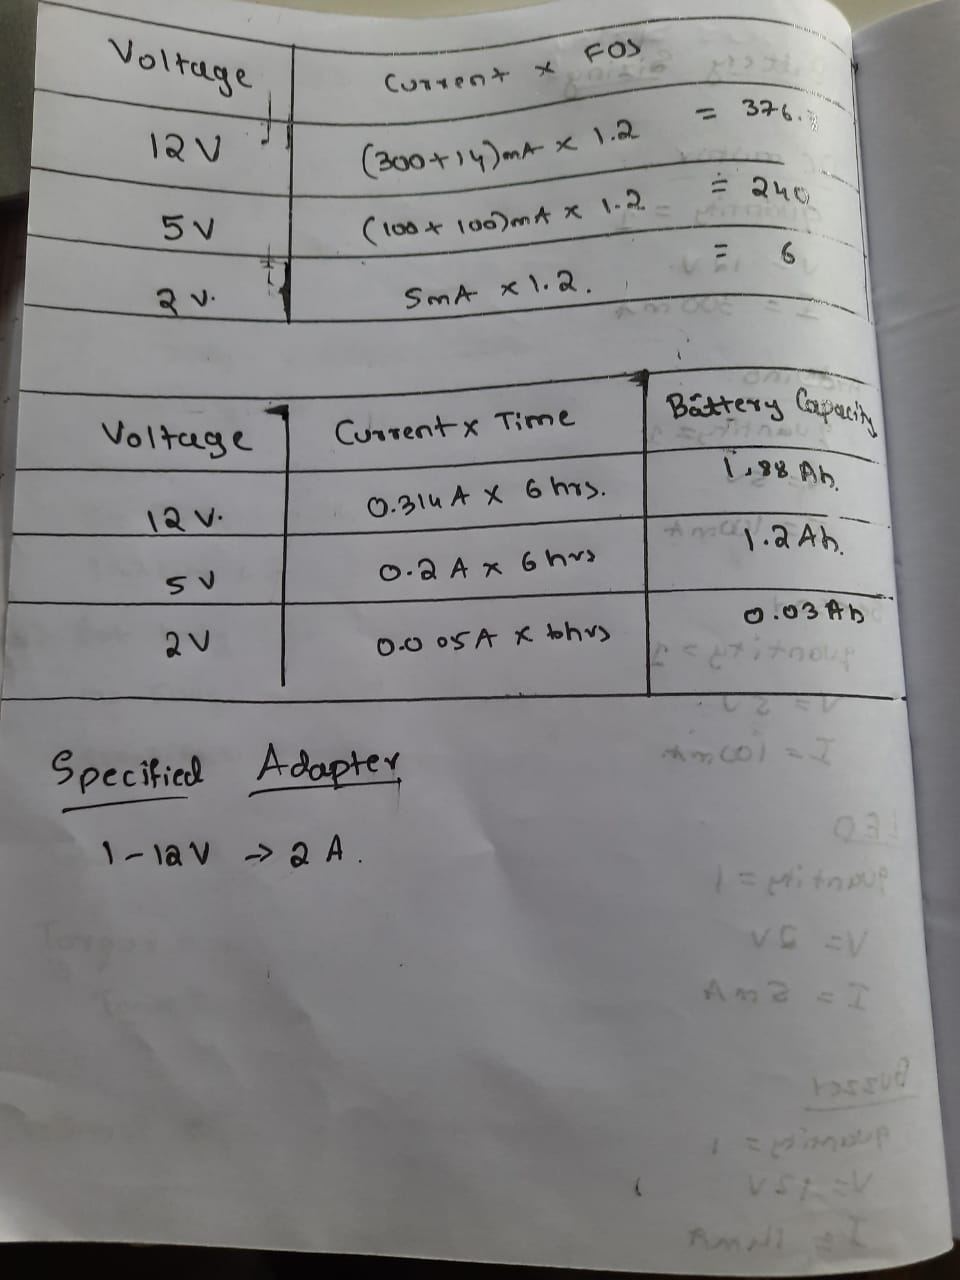 Voltage Current x FOS
12V (300+14)mA x 1.2 = 376.
5V (100+100)mA x 1.2 = 240
2V. 5mA x 1.2. = 6
Voltage Current x Time Battery Capacity
12V. 0.314A x 6 hrs. 1.88 Ah.
5V 0.2 A x 6 hrs 1.2 Ah.
2V 0.005A x 6hrs 0.03 Ah
Specified Adapter
1-12V → 2 A.